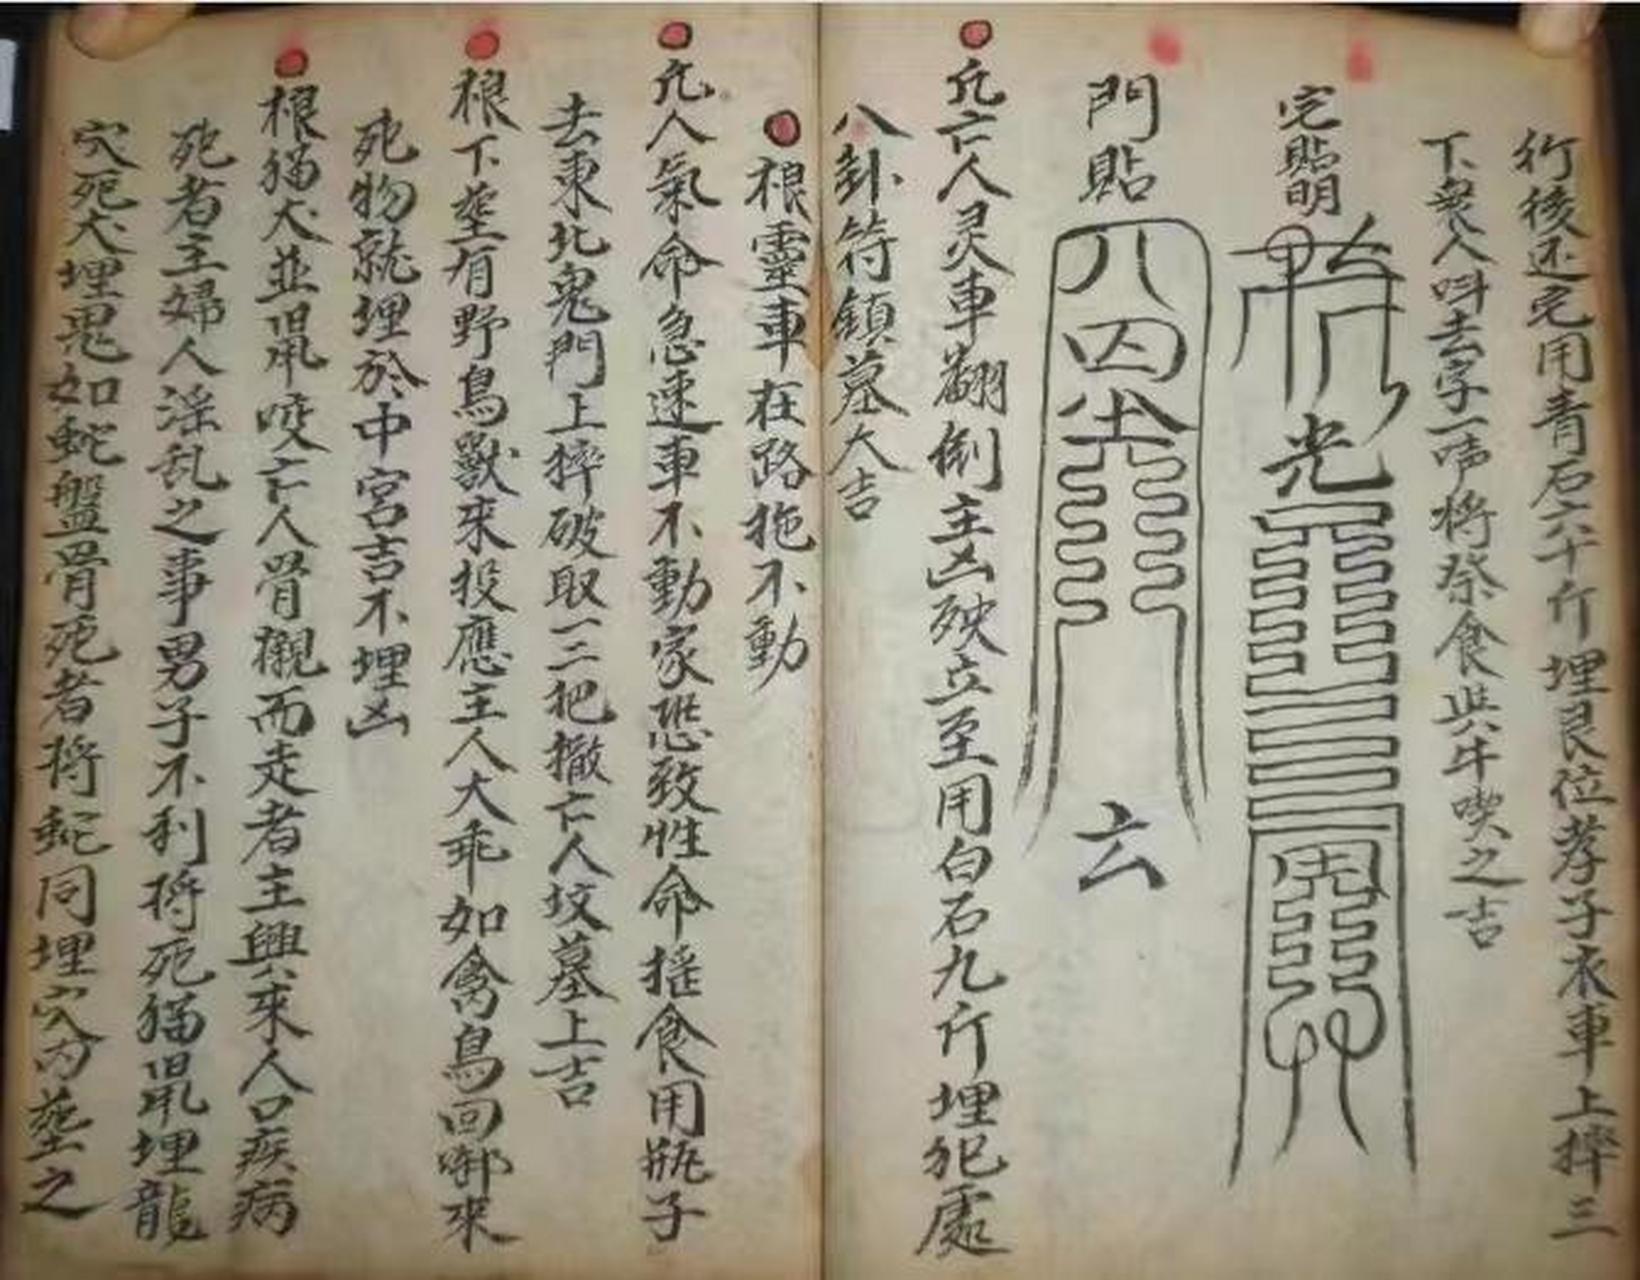 行後还宅用青石六十斤埋艮位孝子衣車上摔三
下衆人呌去字一声将祭食與牛喫之吉
宅貼明
光
門貼
八四
六
凣亡人灵車翻倒主凶殃立至用白石九斤埋犯處
八卦符鎮墓大吉
根靈車在路拖不動
凣人氣命急速車不動家恐致性命摇食用瓶子
去東北鬼門上摔破取一二把撤亡人坟墓上吉
根下塟有野鳥獸來投應主人大乖如禽鳥回啣來
死物就埋於中宮吉不埋凶
根猫犬並鼡咬亡人骨襯而走者主興來人口疾病
死者主婦人淫乱之事男子不利將死猫鼡埋龍
穴死犬埋鬼如蛇盤骨死者將蛇同埋穴内塟之